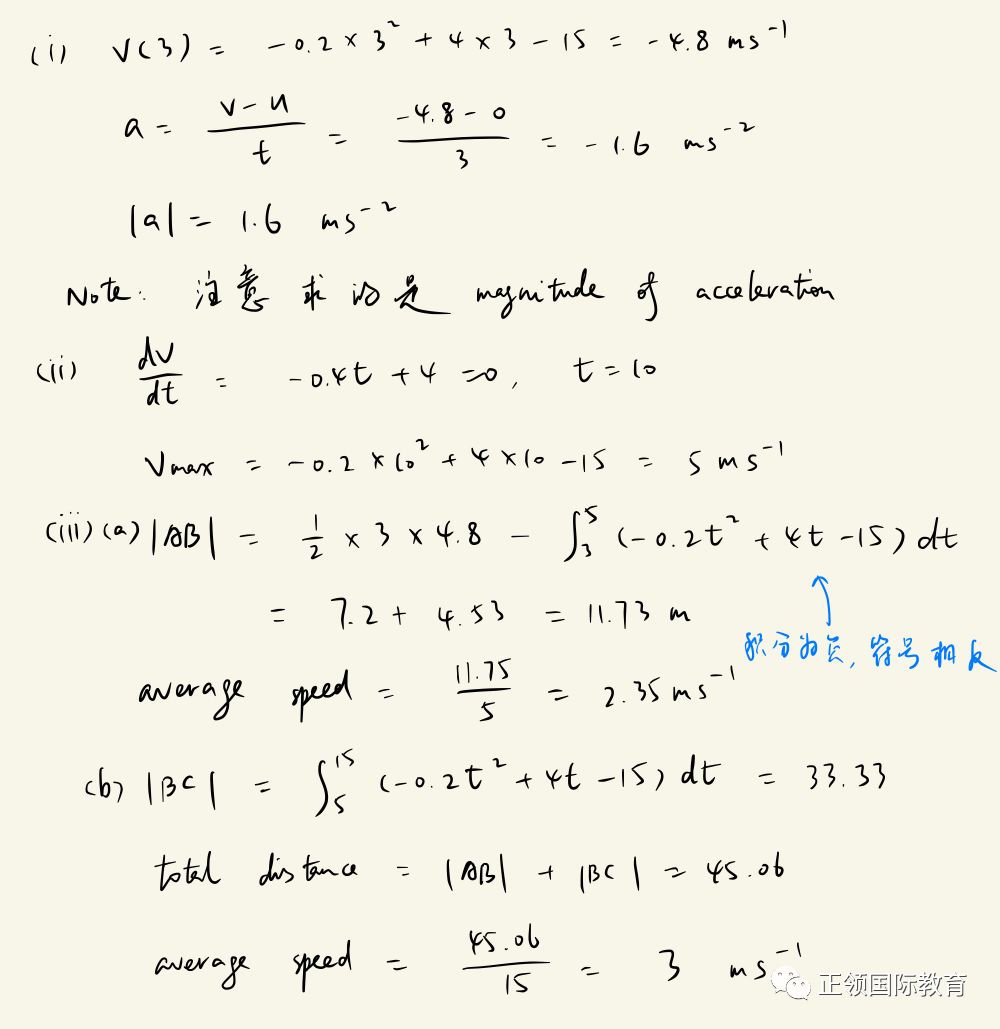 (i) V(3) = -0.2 × 3² + 4 × 3 - 15 = -4.8 ms⁻¹
a = (v - u)/t = (-4.8 - 0)/3 = -1.6 ms⁻²
|a| = 1.6 ms⁻²
Note: 注意求的是 magnitude of acceleration
(ii) dv/dt = -0.4t + 4 = 0, t = 10
Vmax = -0.2 × 10² + 4 × 10 - 15 = 5 ms⁻¹
(iii) (a) |AB| = 1/2 × 3 × 4.8 - ∫₃⁵ (-0.2t² + 4t - 15) dt
= 7.2 + 4.53 = 11.73 m
积分为负, 符号相反
average speed = 11.75/5 = 2.35 ms⁻¹
(b) |BC| = ∫₅¹⁵ (-0.2t² + 4t - 15) dt = 33.33
total distance = |AB| + |BC| = 45.06
average speed = 45.06/15 = 3 ms⁻¹
正领国际教育